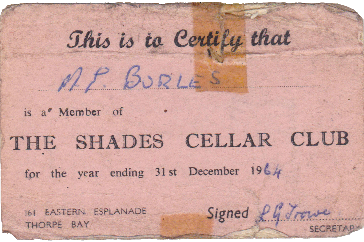 This is to Certify that
M P BURLES
is a Member of
THE SHADES CELLAR CLUB
for the year ending 31st December 1964
161 EASTERN ESPLANADE
THORPE BAY
Signed L G Trowe
SECRETARY